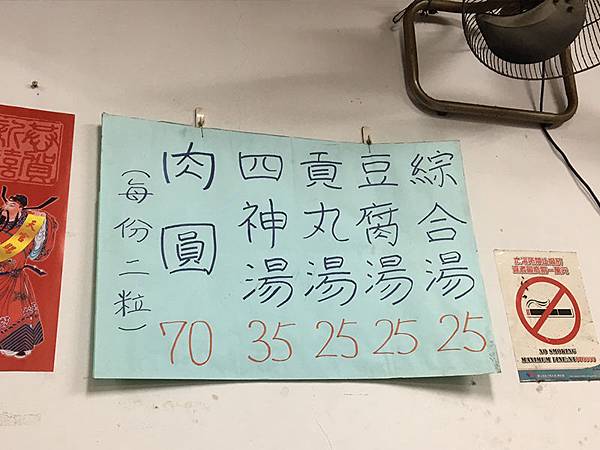 綜合湯 25
豆腐湯 25
貢丸湯 25
四神湯 35
肉圓 70
(每份二粒)
恭賀新禧
NO SMOKING
MAXIMUM FINE:NT